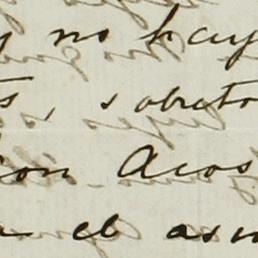 y no hay
s, sobreto
ion Acos
a el asu